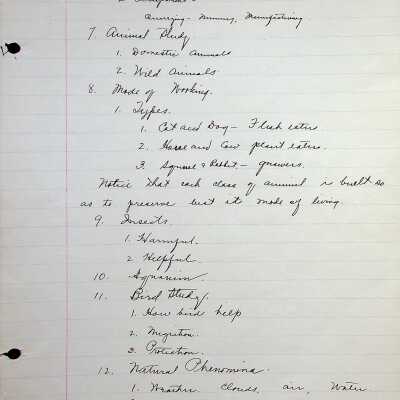 7. Animal Study
1. Domestic animals
2. Wild animals
8. Mode of Working.
1. Types.
1. Cat and Dog – Flesh eaters
2. Horse and Cow plant eaters.
3. Squirrel & Rabbit. – gnawers.
Notice that each class of animal is built so
as to preserve best its mode of living.
9. Insects.
1. Harmful.
2. Helpful.
10. Aquarium.
11. Bird Study.
1. How birds help
2. Migration.
3. Protection.
12. Natural Phenomina.
1. Weather clouds, air, Water